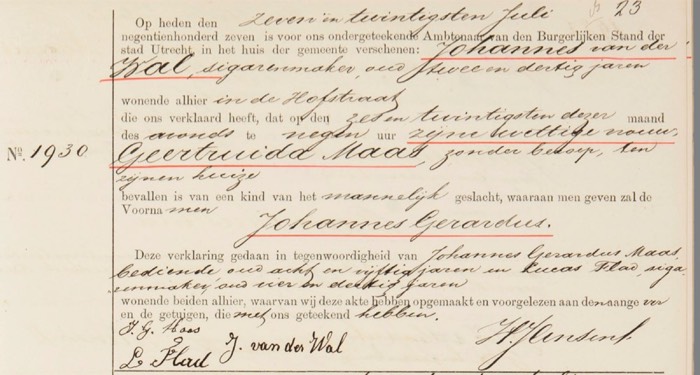 23
Op heden den zeven en twintigsten Juli
negentienhonderd zeven is voor ons ondergeteekende Ambtenaar van den Burgerlijken Stand der
stad Utrecht, in het huis der gemeente verschenen: Johannes van der
Wal, sigarenmaker, oud twee en dertig jaren
wonende alhier in de Hofstraat
die ons verklaard heeft, dat op den zes en twintigsten dezer maand
des avonds te negen uur zijne wettige vrouw,
No. 1930 Geertruida Maas, zonder beroep, ten
zijnen huize
bevallen is van een kind van het mannelijk geslacht, waaraan men geven zal de
Voornamen
Johannes Gerardus.
Deze verklaring gedaan in tegenwoordigheid van Johannes Gerardus Maas,
bediende oud acht en vijftig jaren en Lucas Flad, siga-
renmaker, oud vier en dertig jaren
wonende beiden alhier, waarvan wij deze akte hebben opgemaakt en voorgelezen aan den aangever
en de getuigen, die met ons geteekend hebben.
J. G. Maas
L. Flad J. van der Wal